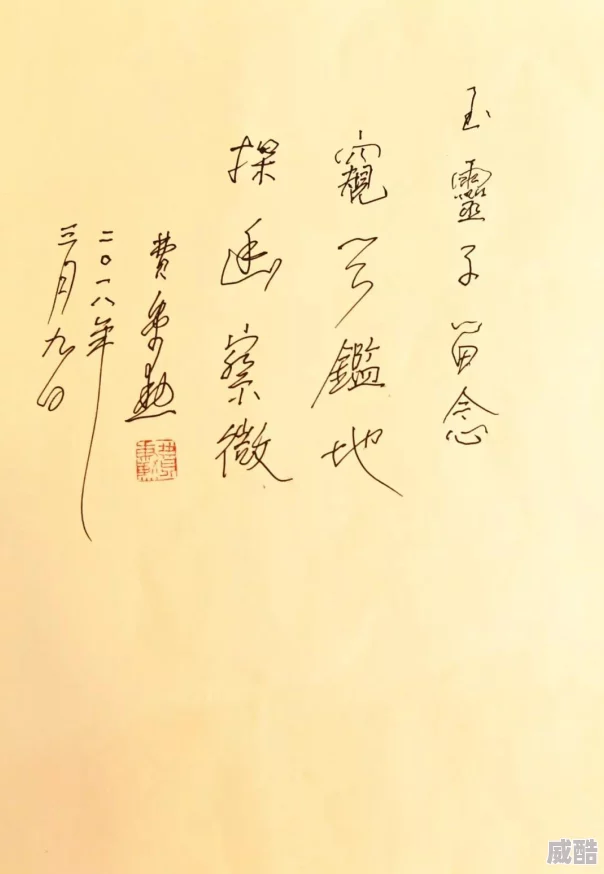 玉靈子留念
窺天鑑地
探幽察微
費秉勳
二〇一八年
三月九日
威酷